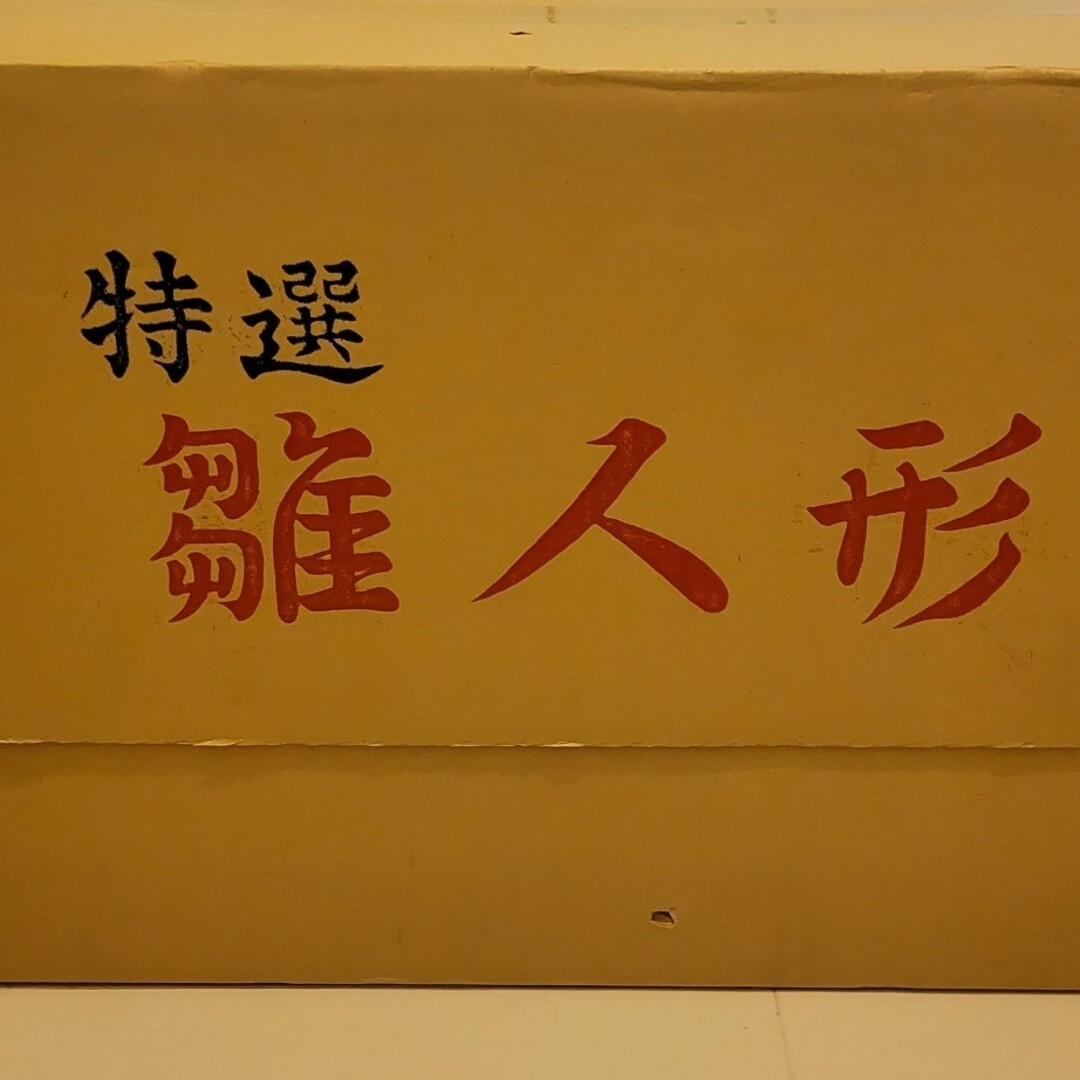 特選
雛人形